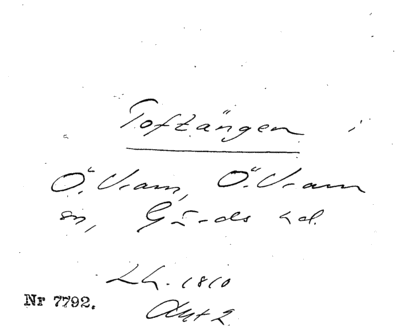 Toftängen i
Ö. Vram, Ö. Vram
sn, Gärds hd.
Lh. 1810
Akt 2
Nr 7792.